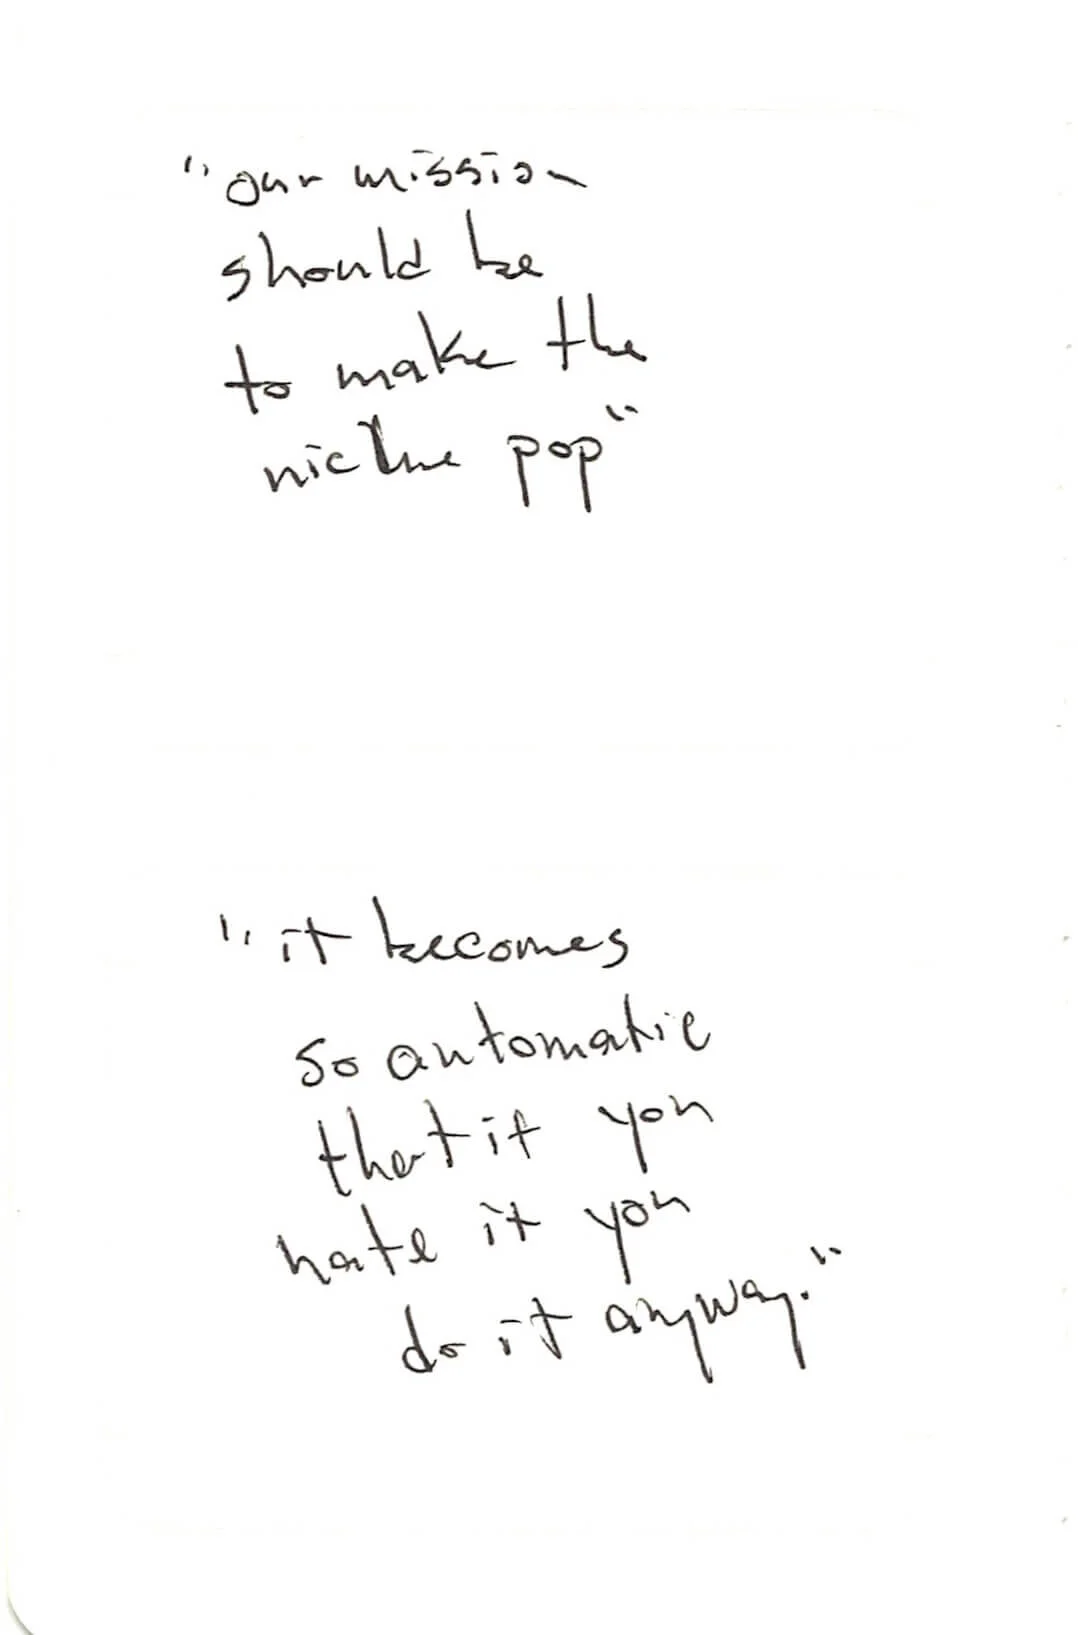 "our mission
should be
to make the
niche pop"
"it becomes
so automatic
that if you
hate it you
do it anyway."